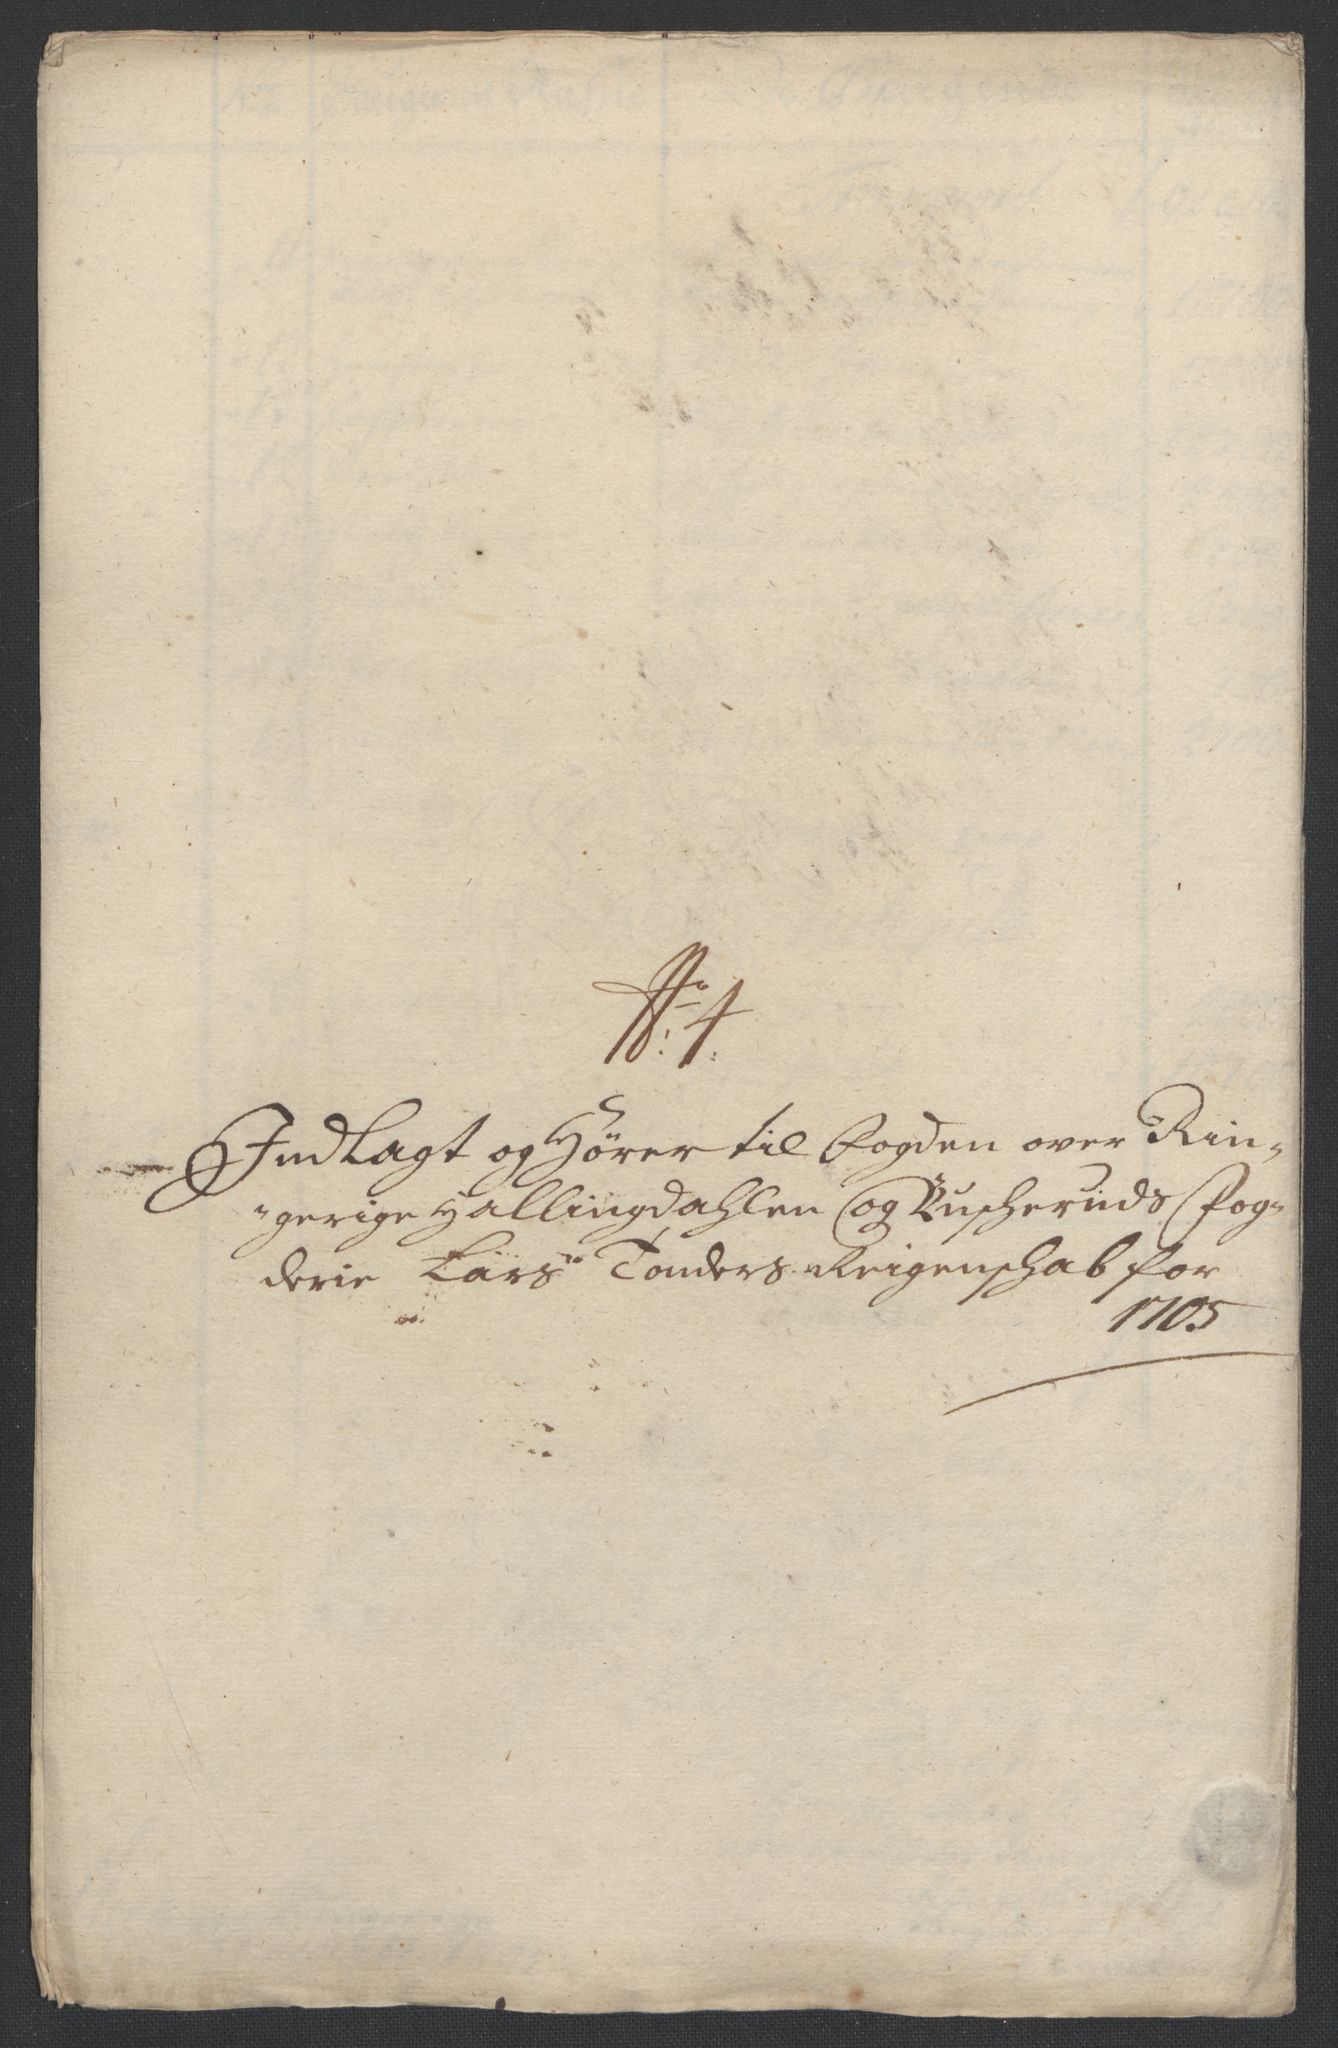 No: 4.
Indlagt og Hører til Fogden over Rin-
gerige Hallingdahlen og Buscheruds Fog-
derie Lars Tonders Reigenschab for
1705